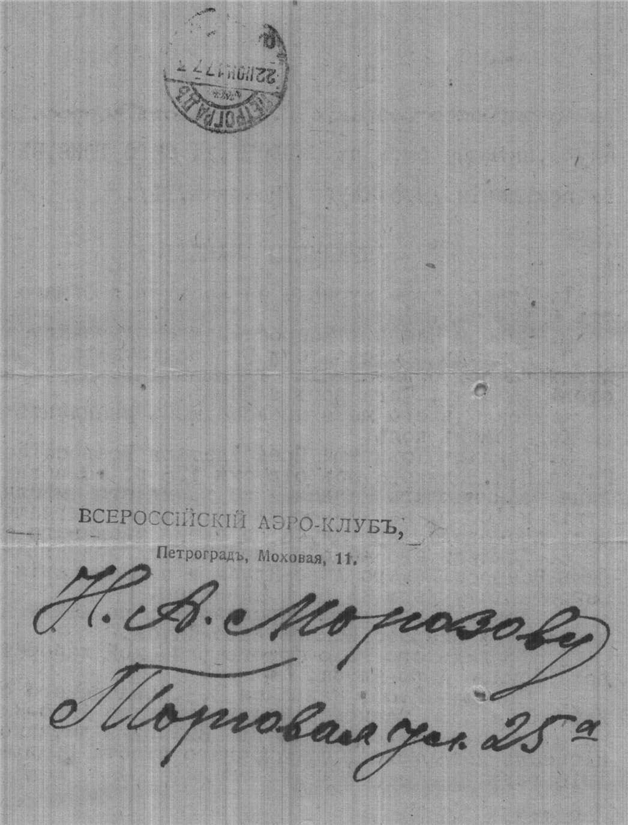 ПЕТРОГРАДЪ
22 ІЮН. 17 7
ВСЕРОССІЙСКІЙ АЭРО-КЛУБЪ,
Петроградъ, Моховая, 11.
Н. А. Морозову
Торговая ул. 25 а